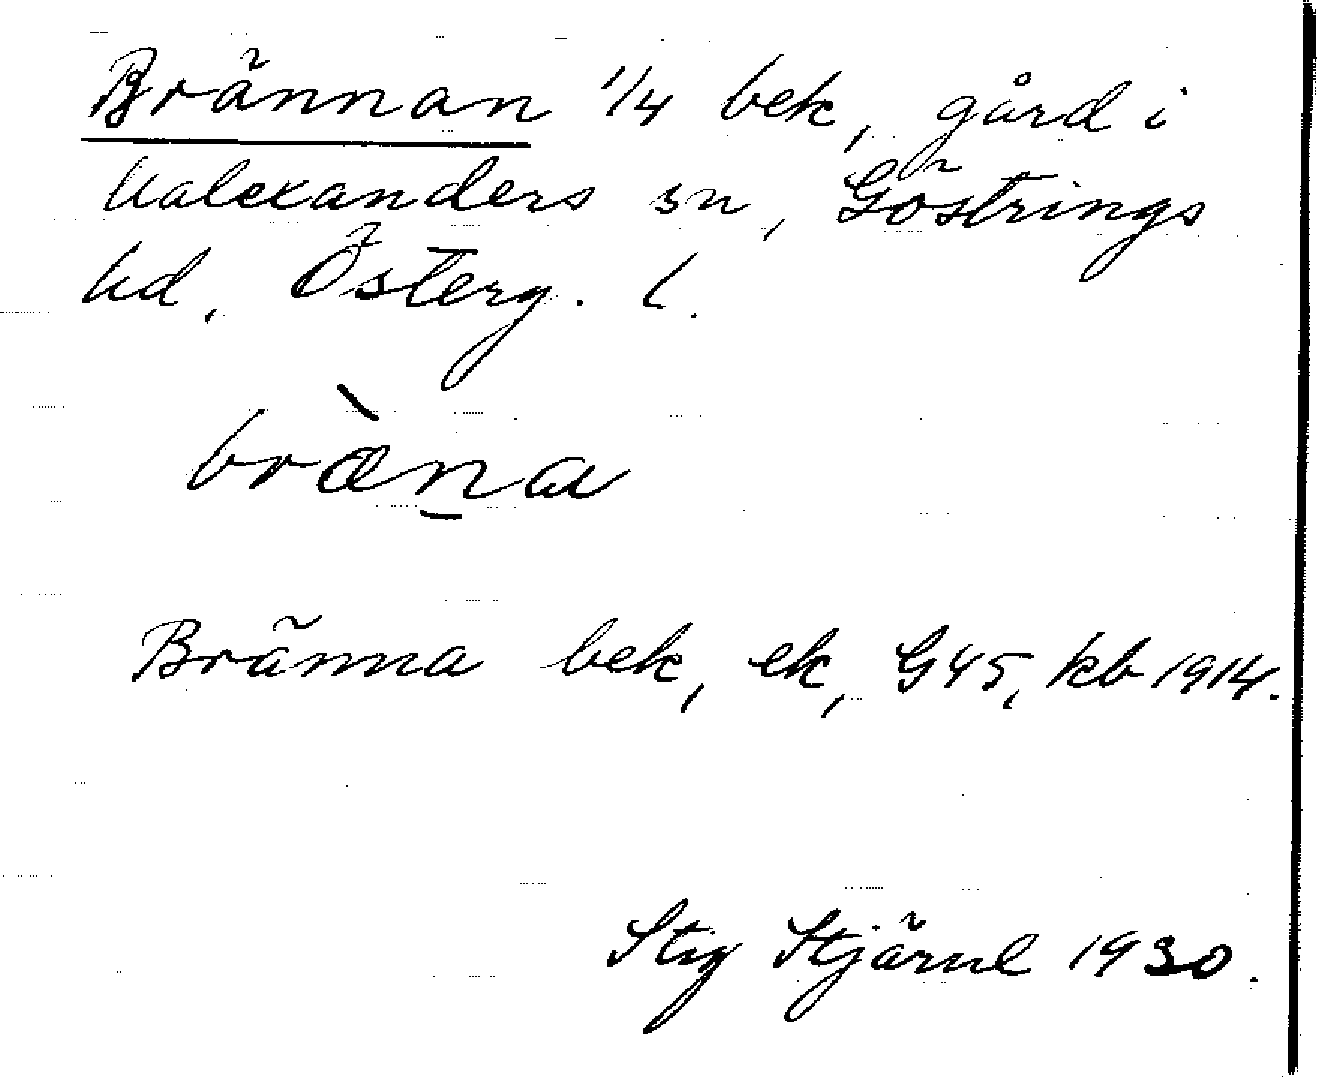 Brännan 1/4 bek, gård i
Malexanders sn, Göstrings
hd, Österg. l.
bræ̀n̲a
Bränna bek, ek, G45, kb 1914.
Stig Stjärnl 1930.